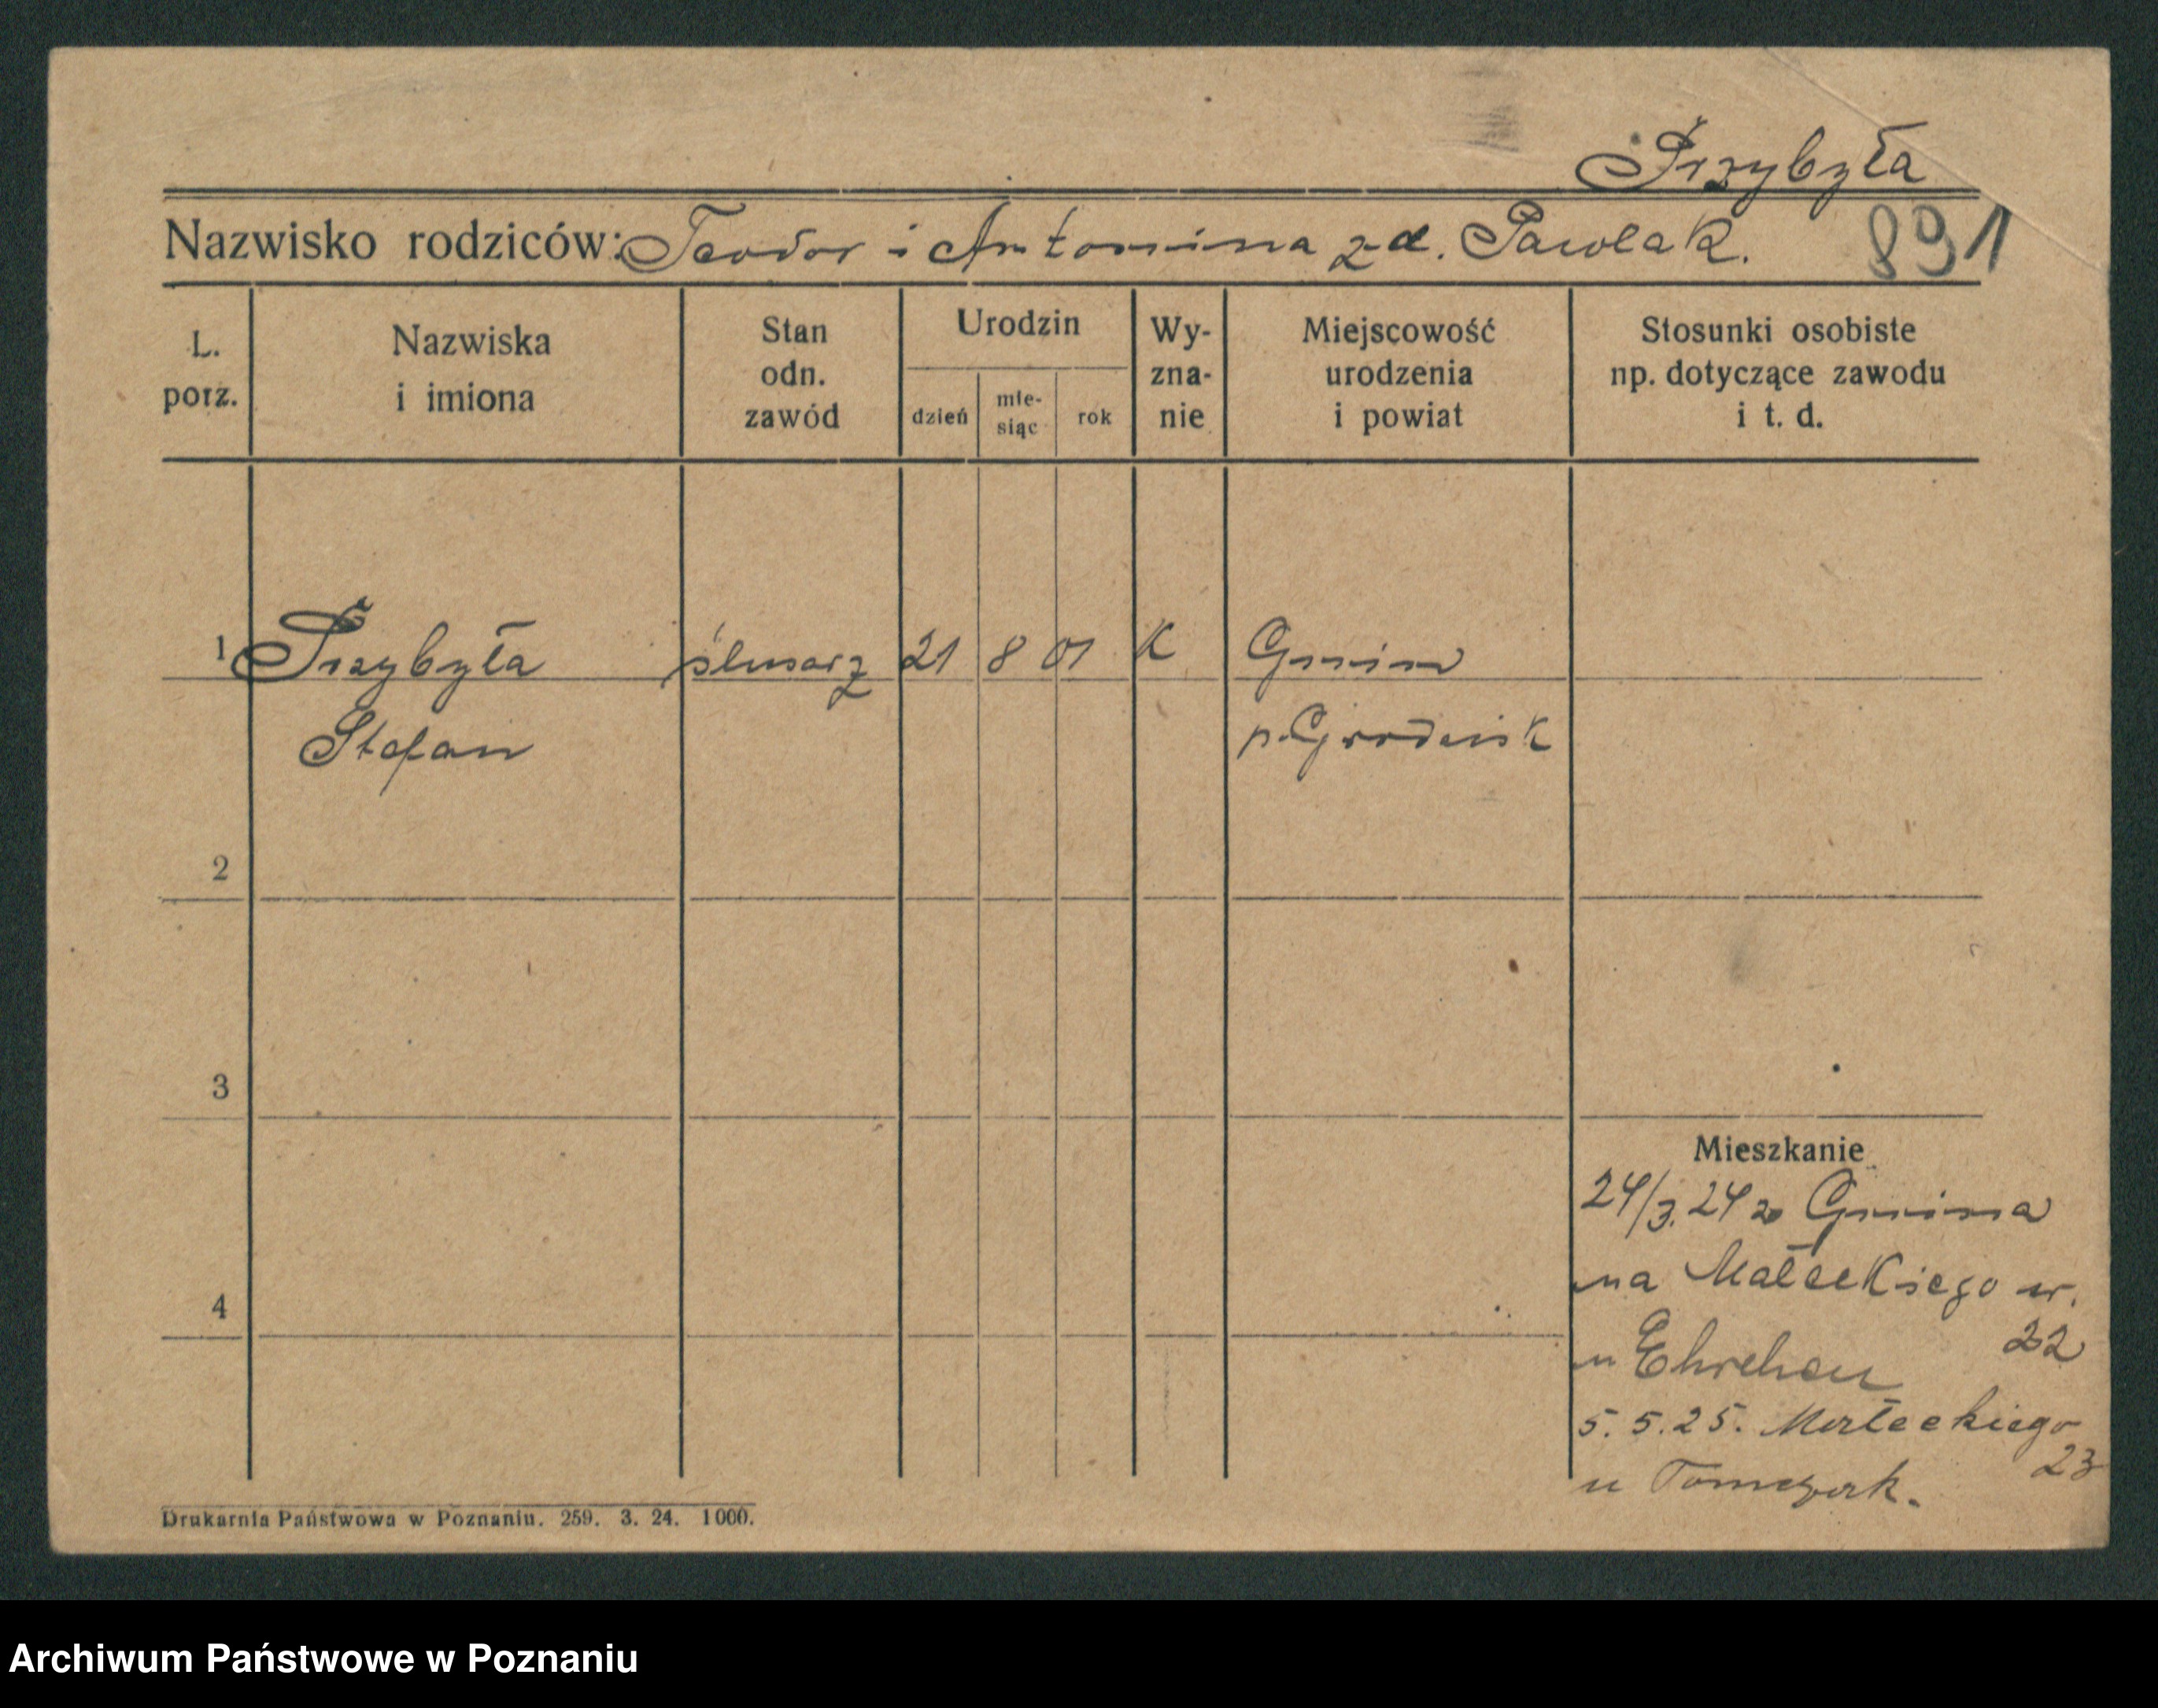 Przybyła
Nazwisko rodziców: Teodor i Antonina zd. Pawlak.
891
L. porz.
Nazwiska i imiona
Stan odn. zawód
Urodzin
dzień
mie-siąc
rok
Wy-zna-nie
Miejscowość urodzenia i powiat
Stosunki osobiste np. dotyczące zawodu i t. d.
1 Przybyła ślusarz 21 8 01 K Gnin
Stefan p. Grodzisk
2
3
4
Mieszkanie
24/3. 24 z Gnina
na Małeckiego nr.
22
u
5. 5. 25. Małeckiego
23
u Tomczak.
Drukarnia Państwowa w Poznaniu. 259. 3. 24. 1000.
Archiwum Państwowe w Poznaniu